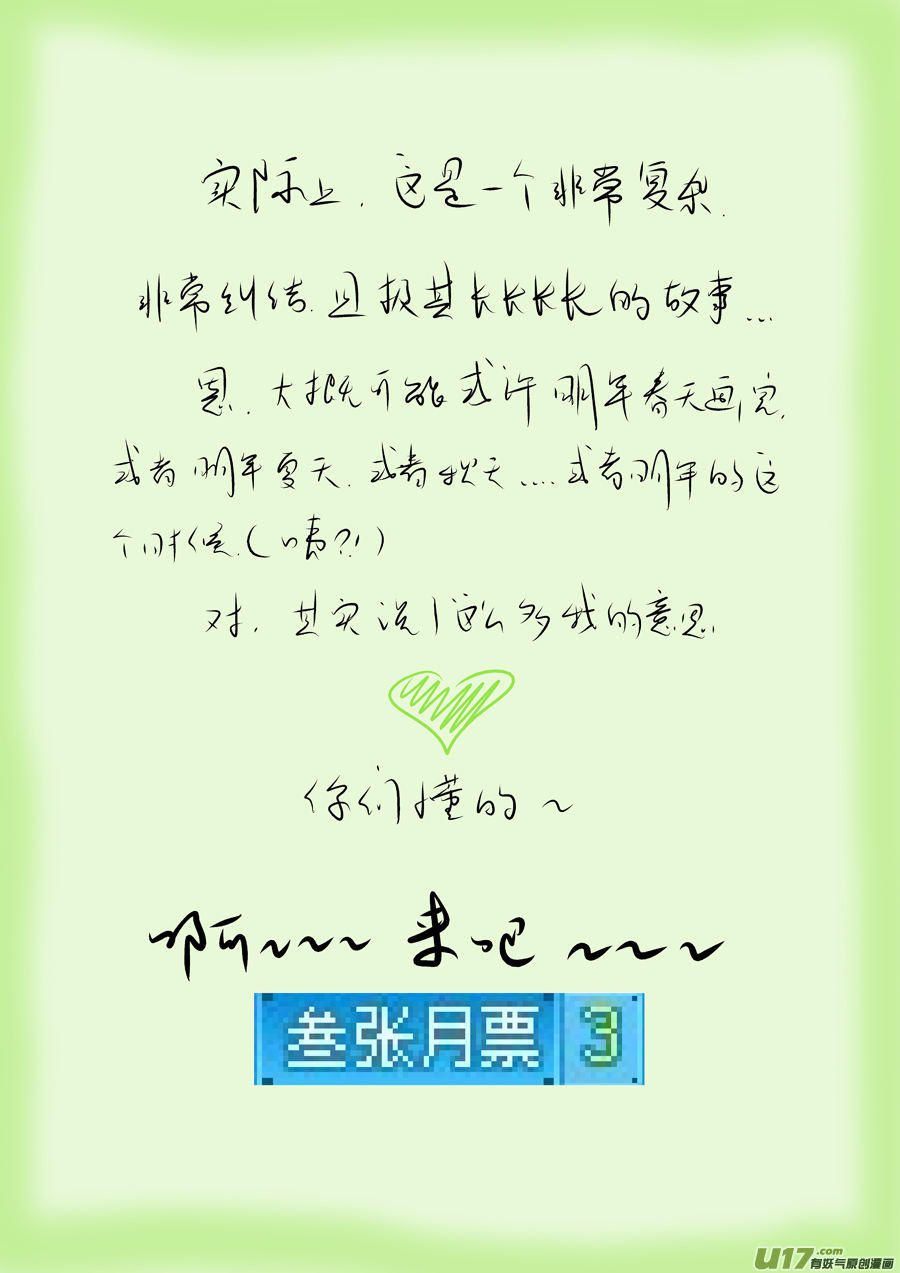 实际上,这是一个非常复杂.
非常纠结.且极其长长长长的故事...
恩.大概可能或许明年春天画完.
或者明年夏天.或者秋天....或者明年的这
个时候.(咦?!)
对.其实说了这么多我的意思
你们懂的~
啊~~~来吧~~~
叁张月票 3
U17.com
有妖气原创漫画